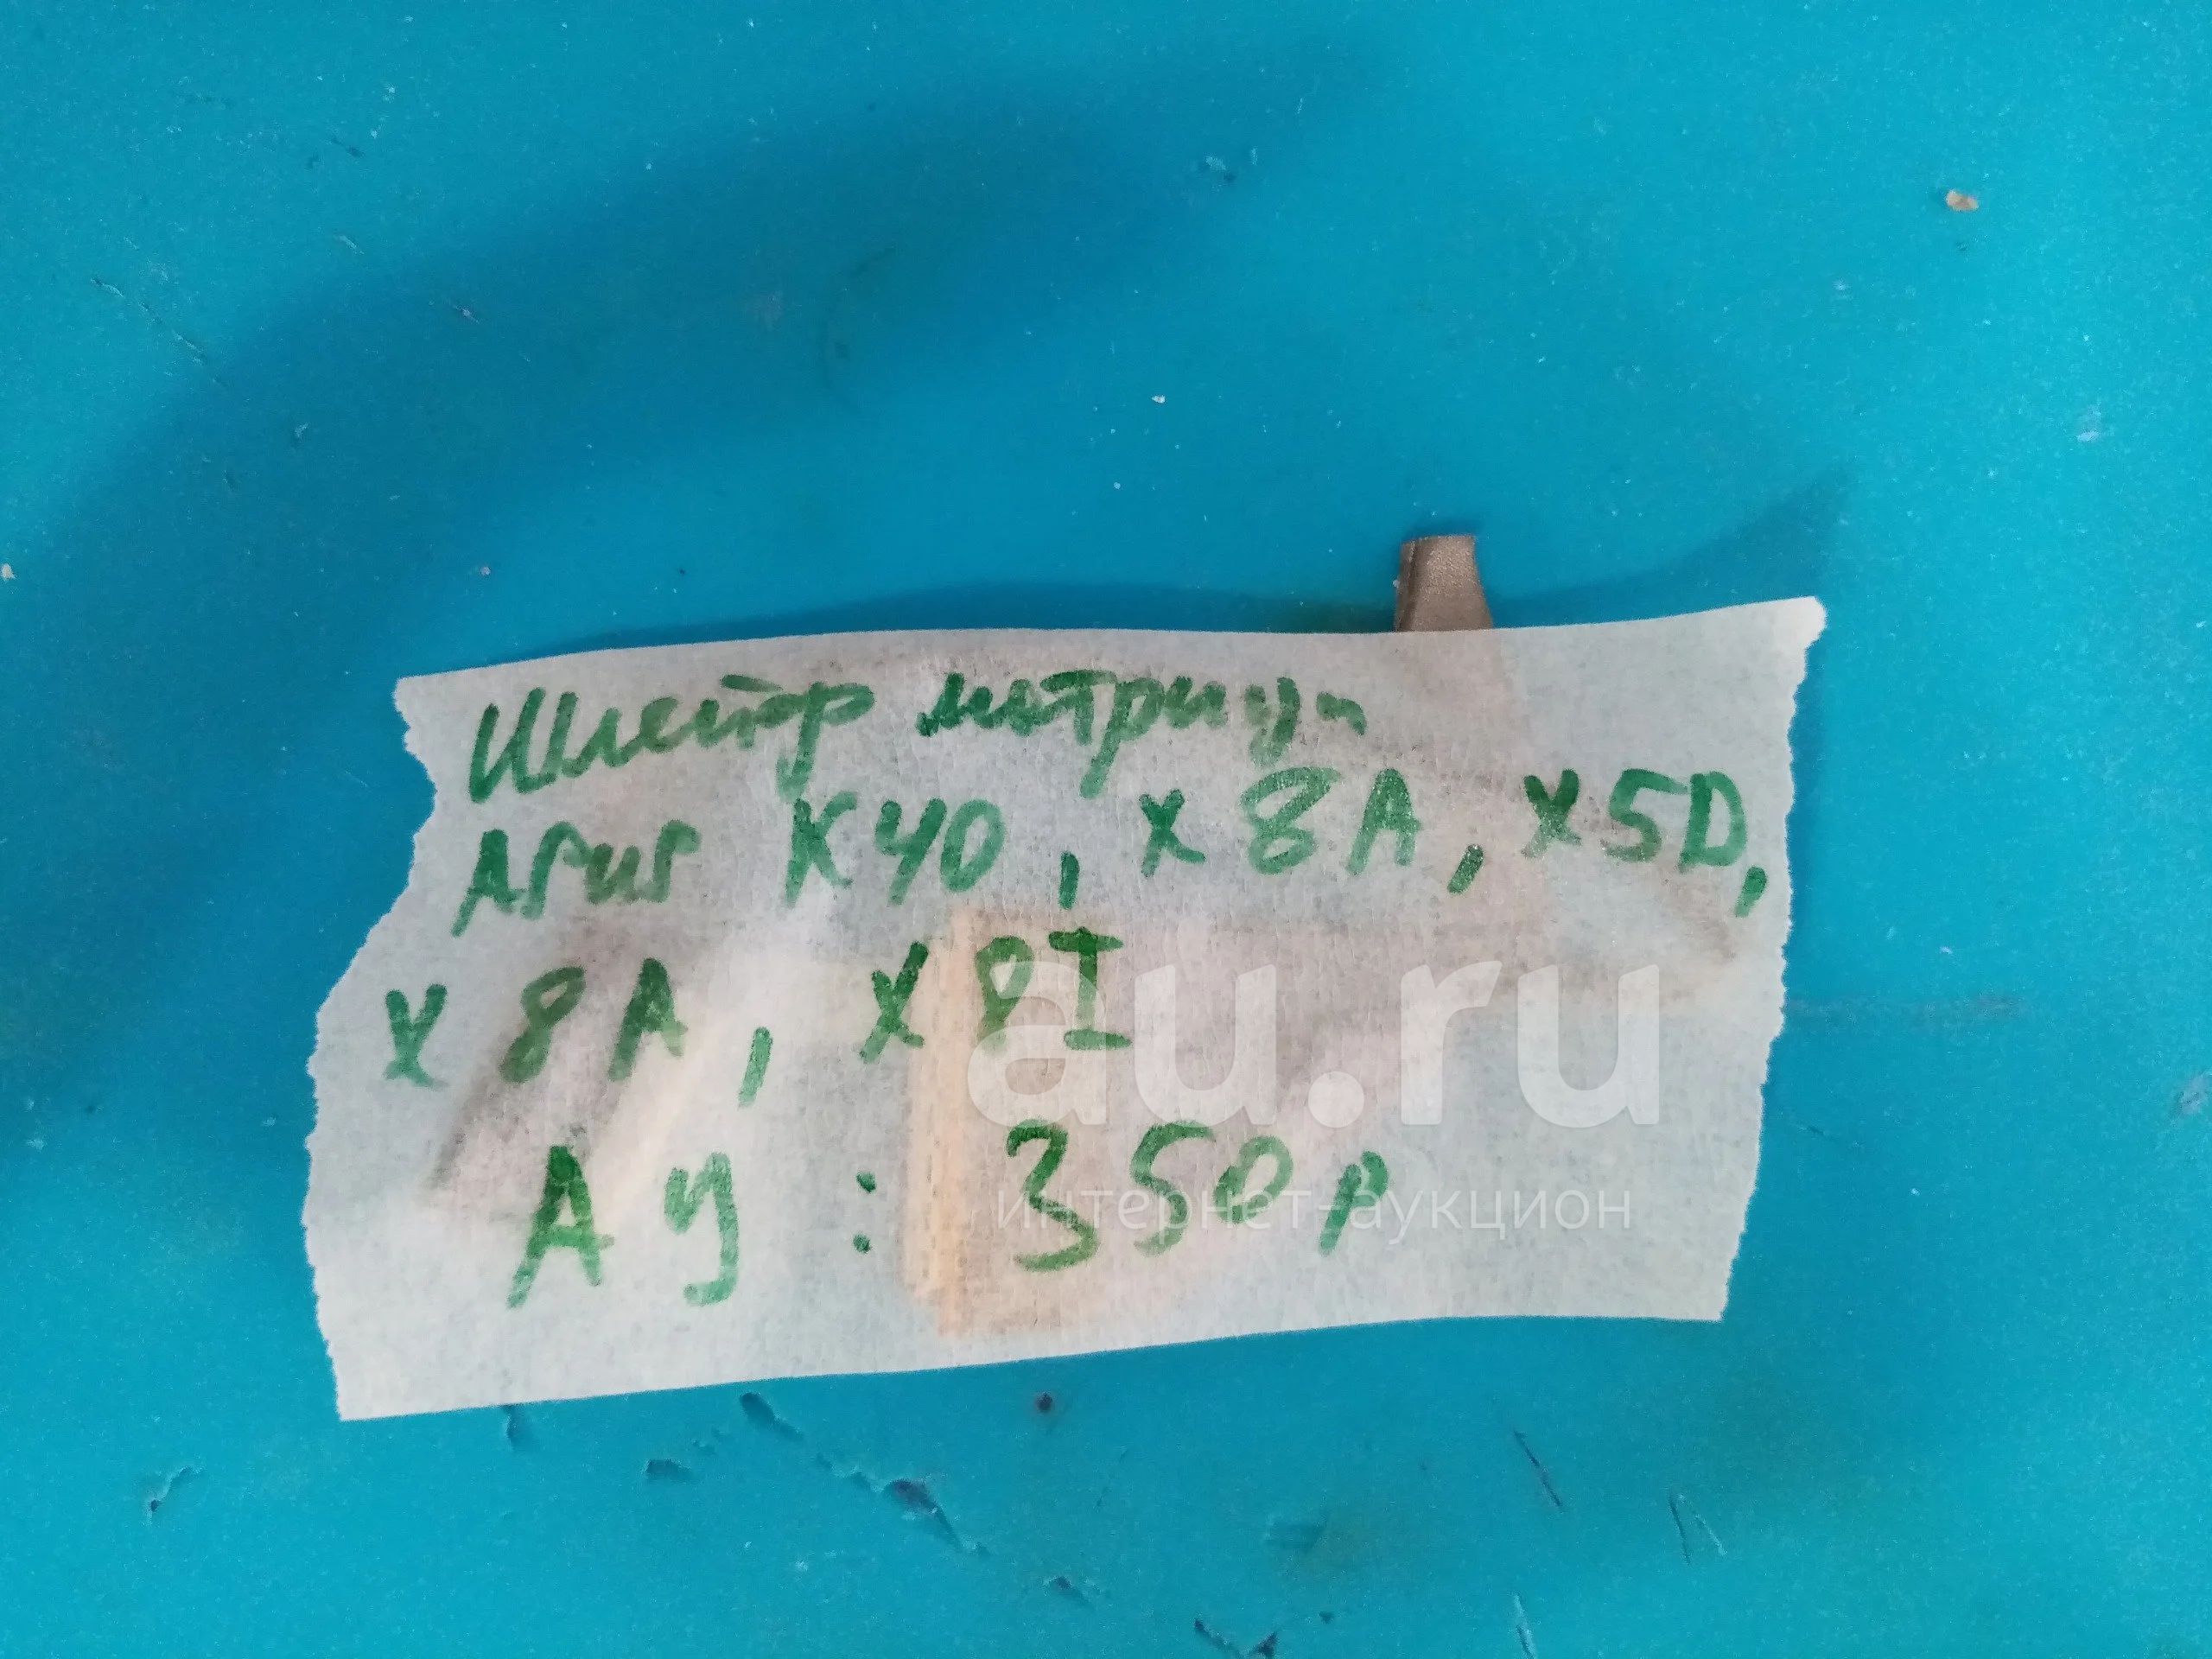 Шлейф матрицы
Asus K40, x8A, x5D,
x8A, x8I
Ау: 350р
au.ru
интернет-аукцион